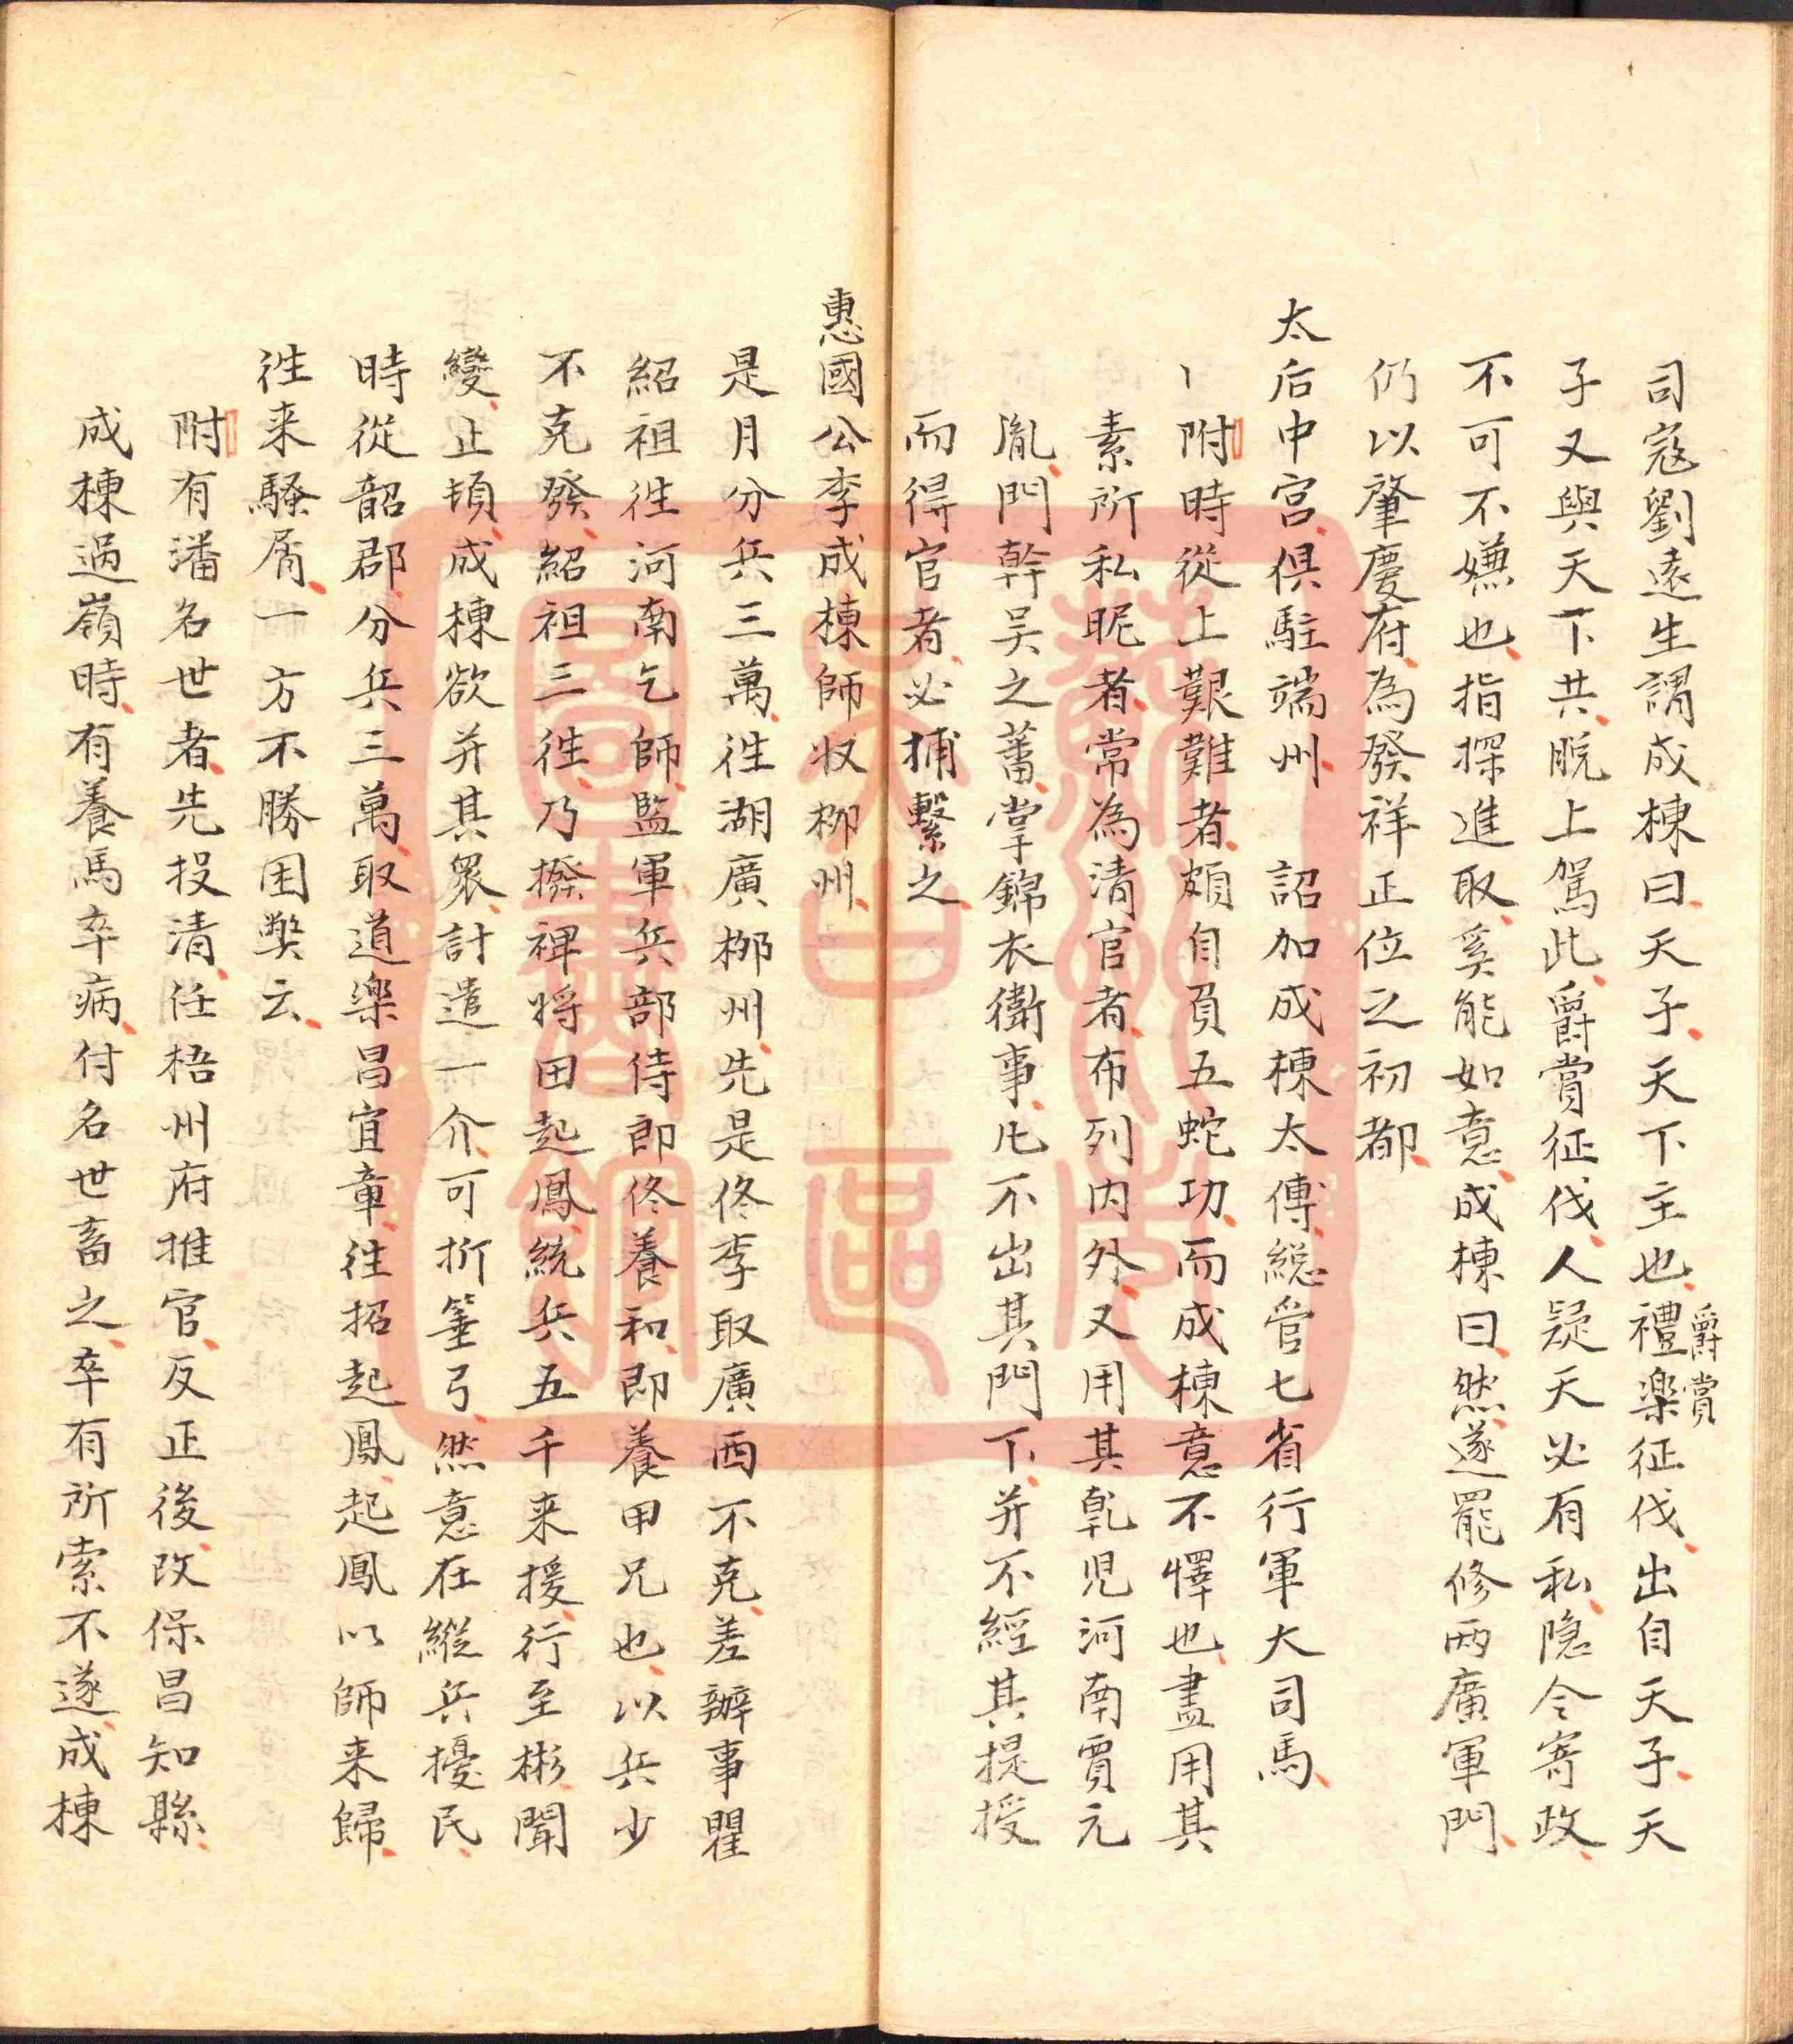 司寇劉遠生謂成棟曰天子天下主也禮楽征伐出自天子天
爵賞
子又與天下共脱上駕此爵賞征伐人疑天必有私隐令寄政
不可不嫌也指探進取奚能如意成棟曰然遂罷修兩廣軍門
仍以肇慶府為發祥正位之初都
太后中宫俱駐端州 詔加成棟太傅総管七省行軍大司馬
附時從上艱難者頗自負五蛇功而成棟意不懌也盡用其
素所私昵者常為清官者布列内外又用其乹児河南賈元
胤門幹吴之蕃掌錦衣衛事凡不出其門下并不經其提授
而得官者必捕繫之
惠國公李成棟師收栁州
是月分兵三萬徃湖廣栁州先是佟李取廣西不克差辦事瞿
紹祖徃河南乞師監軍兵部侍郎佟養和即養甲兄也以兵少
不克發紹祖三徃乃撥禆将田起鳳統兵五千来援行至彬聞
變止頓成棟欲并其衆計遣一介可折箠弓然意在縦兵擾民
時從韶郡分兵三萬取道楽昌宜章徃招起鳳起鳳以師来歸
徃来騷屑一方不勝困獘云
附有潘名世者先投清任梧州府推官反正後改保昌知縣
成棟過嶺時有養馬卒病付名世畜之卒有所索不遂成棟